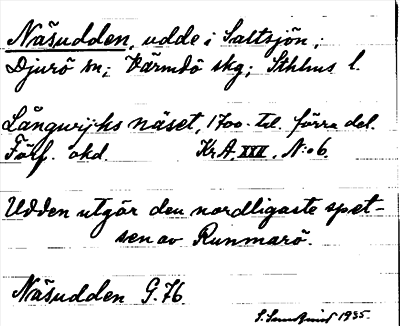 Näsudden, udde i Saltsjön;
Djurö sn; Värmdö skg; Sthlms l.
Långwijks näset, 1700-tal. förra del.
Förf. okd. KrA XXII. N:o 6.
Udden utgör den nordligaste spet-
sen av Runmarö.
Näsudden G. 76
1935.